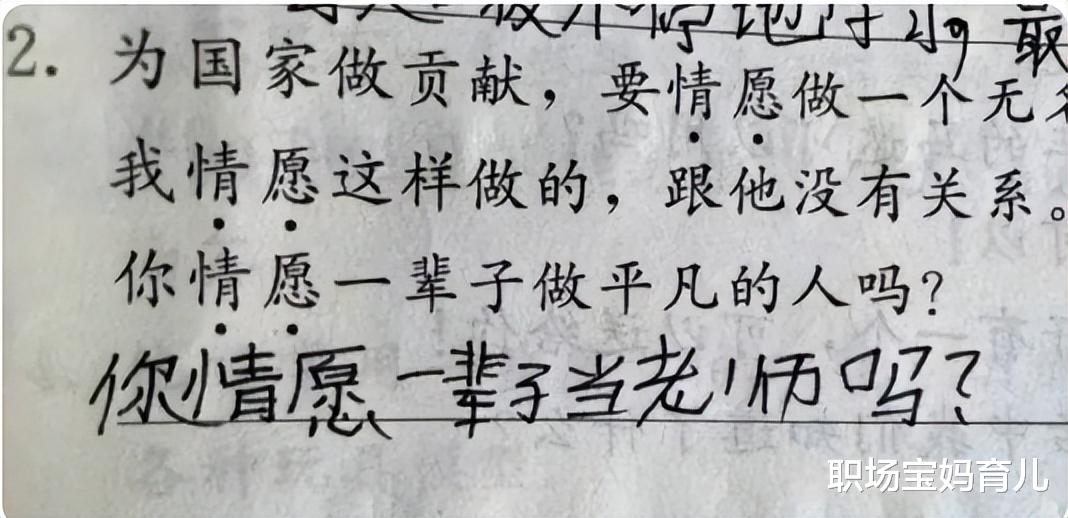 最
2. 为国家做贡献，要情愿做一个无
我情愿这样做的，跟他没有关系。
你情愿一辈子做平凡的人吗？
你情愿一辈子当老师吗？
职场宝妈育儿